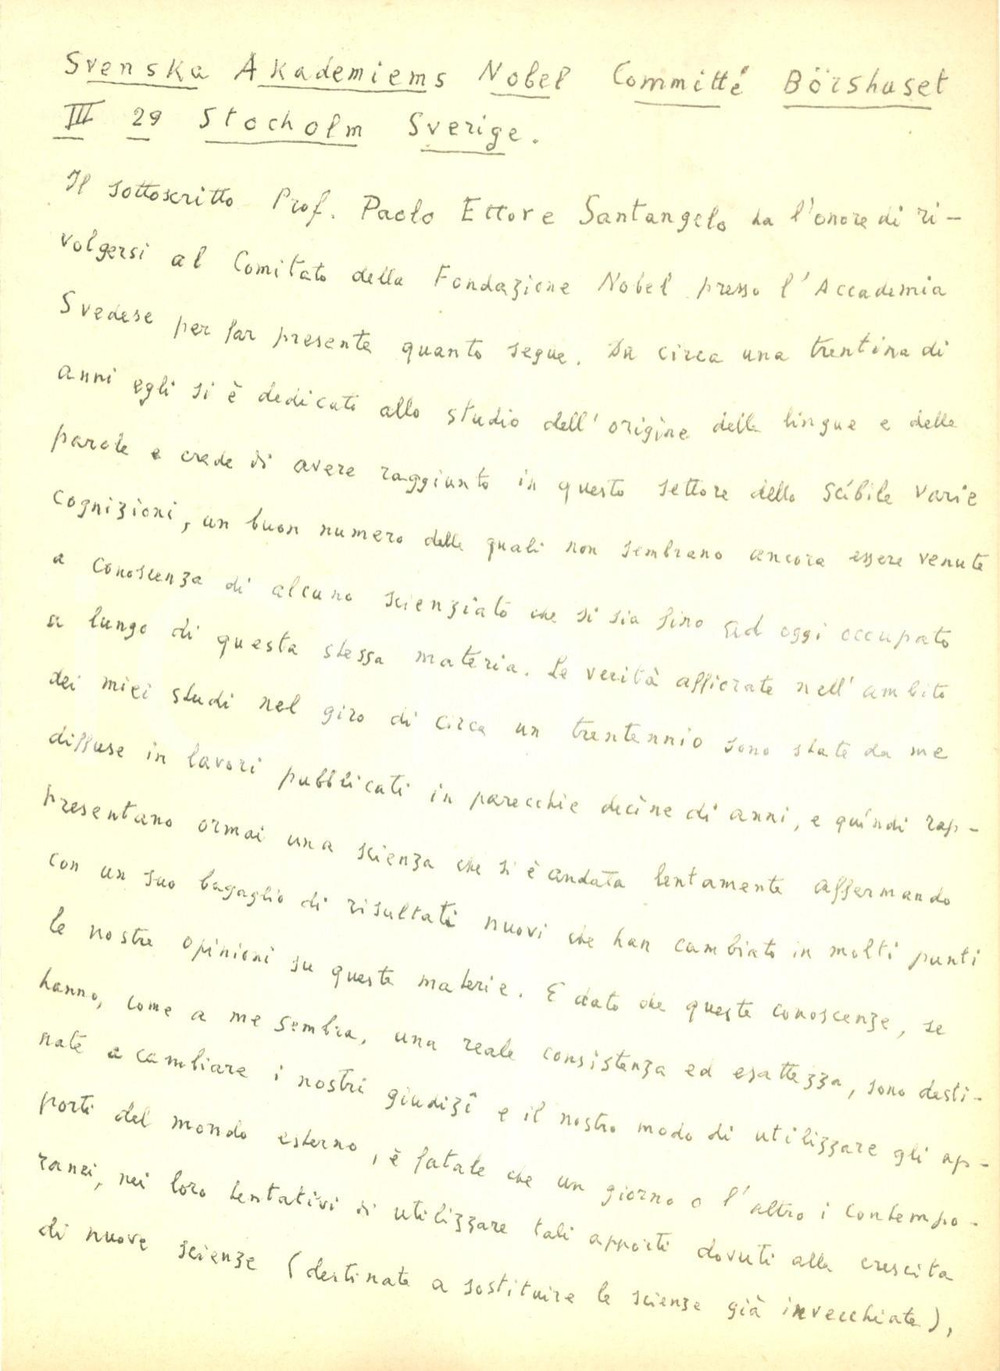 Svenska Akademiems Nobel Committé Börshuset
III 29 Stocholm Sverige.
Il sottoscritto Prof. Paolo Ettore Santangelo ha l'onore di ri-
volgersi al Comitato della Fondazione Nobel presso l'Accademia
Svedese per far presente quanto segue. Da circa una trentina di
anni egli si è dedicati allo studio dell'origine delle lingue e delle
parole e crede di avere raggiunto in questo settore dello scibile varie
cognizioni, un buon numero delle quali non sembrano ancora essere venute
a conoscenza di alcuno scienziato che si sia sino ad oggi occupato
a lungo di questa stessa materia. Le verità affiorate nell'ambito
dei miei studi nel giro di circa un trentennio sono state da me
diffuse in lavori pubblicati in parecchie decine di anni, e quindi rap-
presentano ormai una scienza che si è andata lentamente affermando
con un suo bagaglio di risultati nuovi che han cambiato in molti punti
le nostre opinioni su queste materie. E dato che queste conoscenze, se
hanno, come a me sembra, una reale consistenza ed esattezza, sono desti-
nate a cambiare i nostri giudizî e il nostro modo di utilizzare gli ap-
porti del mondo esterno, è fatale che un giorno o l'altro i contempo-
ranei, nei loro tentativi di utilizzare tali apporti dovuti alla crescita
di nuove scienze (destinate a sostituire le scienze già invecchiate),